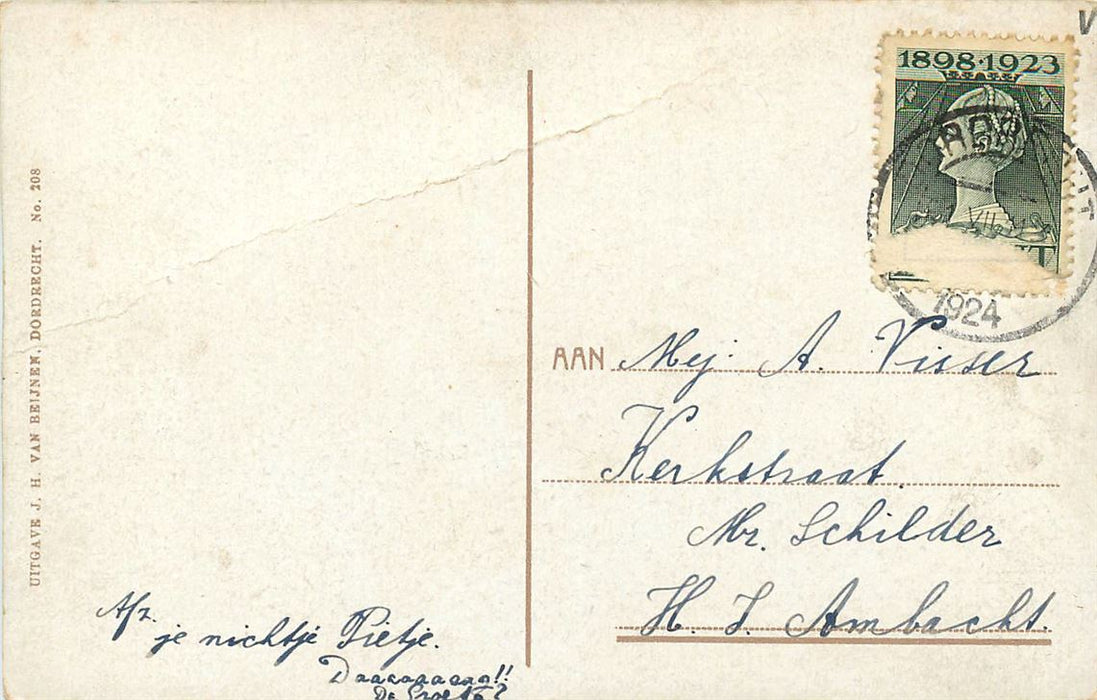 UITGAVE J. H. VAN BEIJNEN, DORDRECHT. No. 208
Afz.
je nichtje Pietje.
Daaaaaaaag!!
De Groete?
1898·1923
VII
1924
AAN Mej. A. Visser
Kerkstraat.
Mr. Schilder
H. I. Ambacht.
V